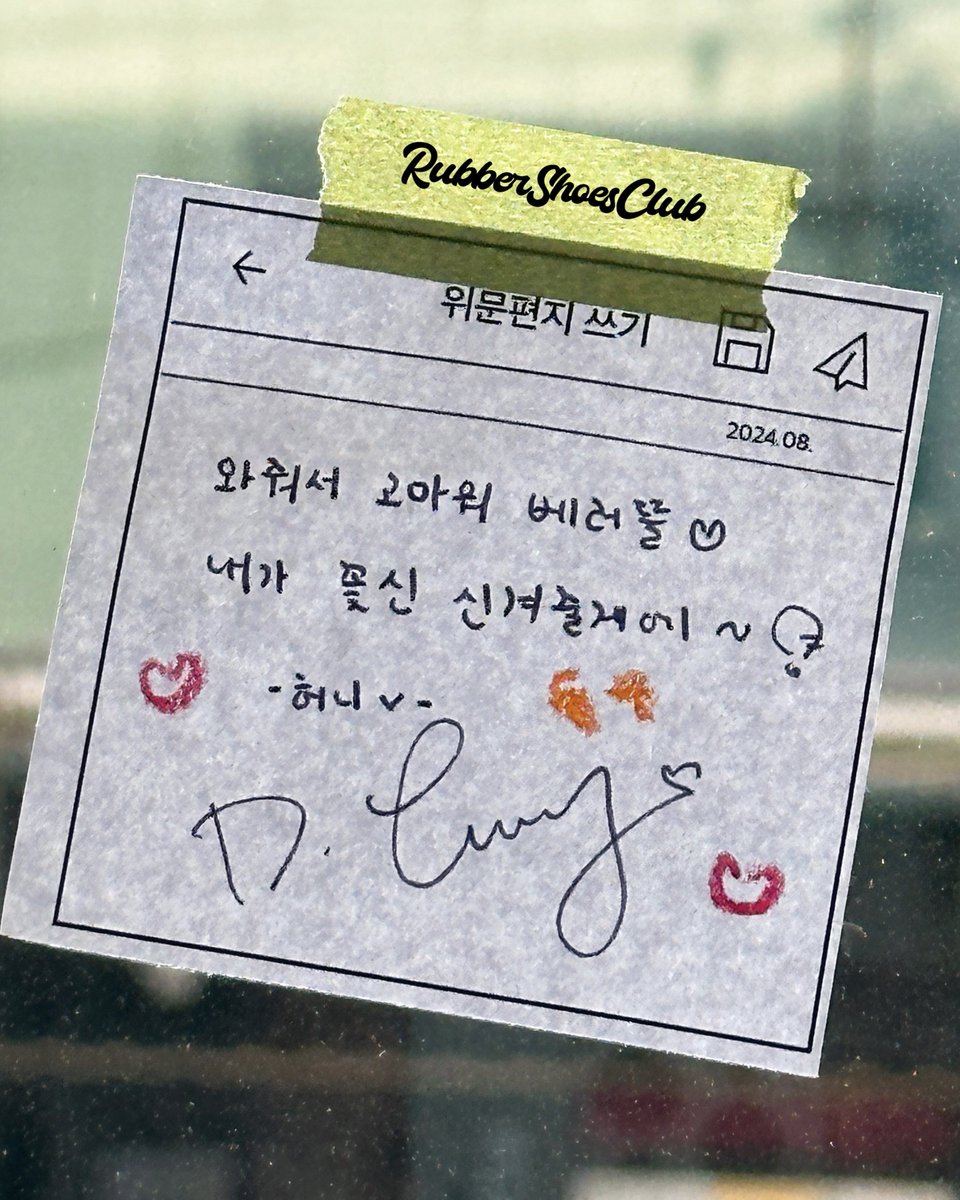 RubberShoesClub
위문편지 쓰기
2024.08.
와줘서 고마워 베러뿔
내가 꽃신 신겨줄게에 ~
- 허니 -